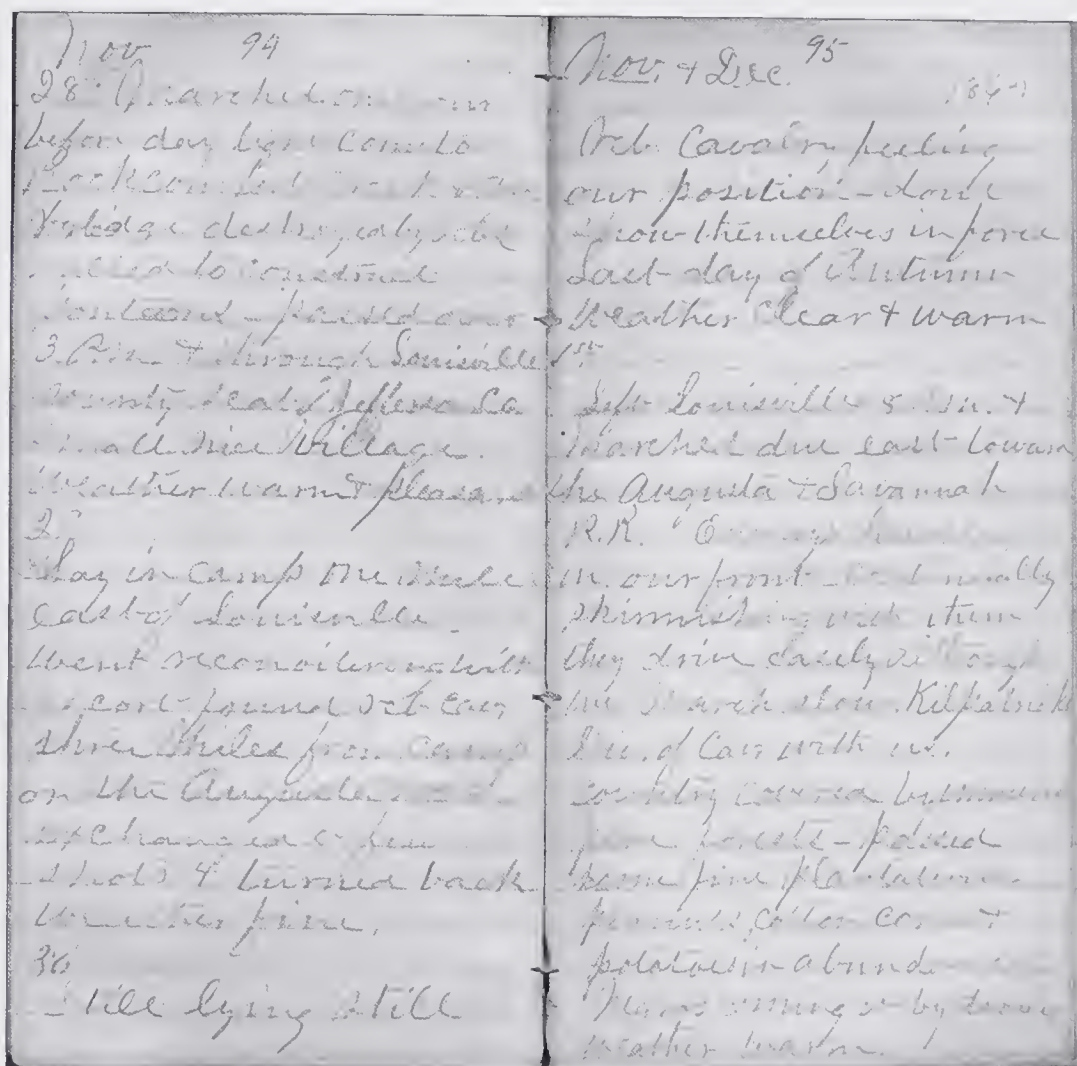 Nov 94
28 Marched one hour
before day light came to
Rock Comfort Creek
& bridge destroyed by reb
to construct
Pontoons - passed over
3. P.m. & through Louisville
County seat of Jefferson Co
Small nice village.
Weather warm & pleasant
29
Lay in camp one mile
east of Louisville
Went reconoitering with
escort found reb cav
three miles from camp
on the Augusta
exchanged a few
shots & turned back
Weather fine.
30
Still lying still
Nov. & Dec. 95
1864
Reb. Cavalry feeling
our position - dont
show themselves in force
Last day of Autumn
Weather Clear & warm
1st
Left Louisville 8 a.m. &
marched due east toward
the Augusta & Savannah
R.R.
in our front
skirmishing with them
they drive easily
we march slow. Kilpatrick
Div. of Cav with us.
country covered
pine forests - passed
some fine plantations
peanuts, cotton corn &
potatoes in abund
coming by
Weather warm.